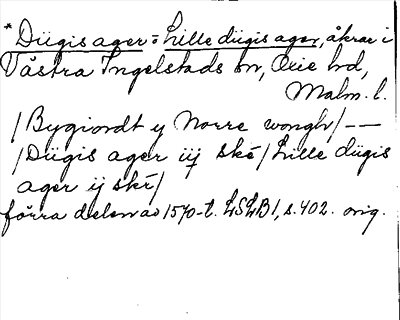 * Düigis ager = Lille düigis ager, åkrar i
Västra Ingelstads sn, Oxie hd,
Malm. l.
/Bygiordt y Norre wongh/ – –
/Düigis ager iij ske/ Lille düigis
ager ij ske/
förra delen av 1570-t. LSLB1, s. 402. orig.